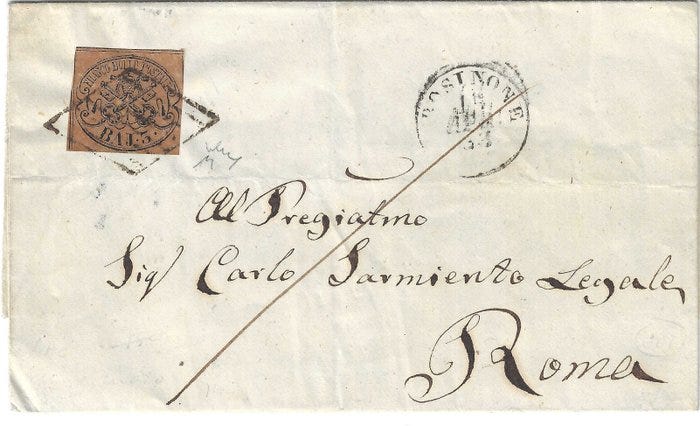 FRANCO BOLLO POSTALE
BAI. 3.
ROSINONE
15
APR
53
Al Pregiatmo
Sigr Carlo Sarmiento Legale
Roma